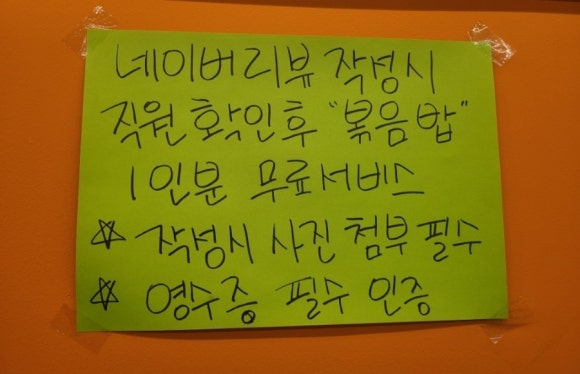 네이버리뷰 작성시
직원 확인후 "볶음밥"
1인분 무료서비스
☆ 작성시 사진 첨부 필수
☆ 영수증 필수 인증